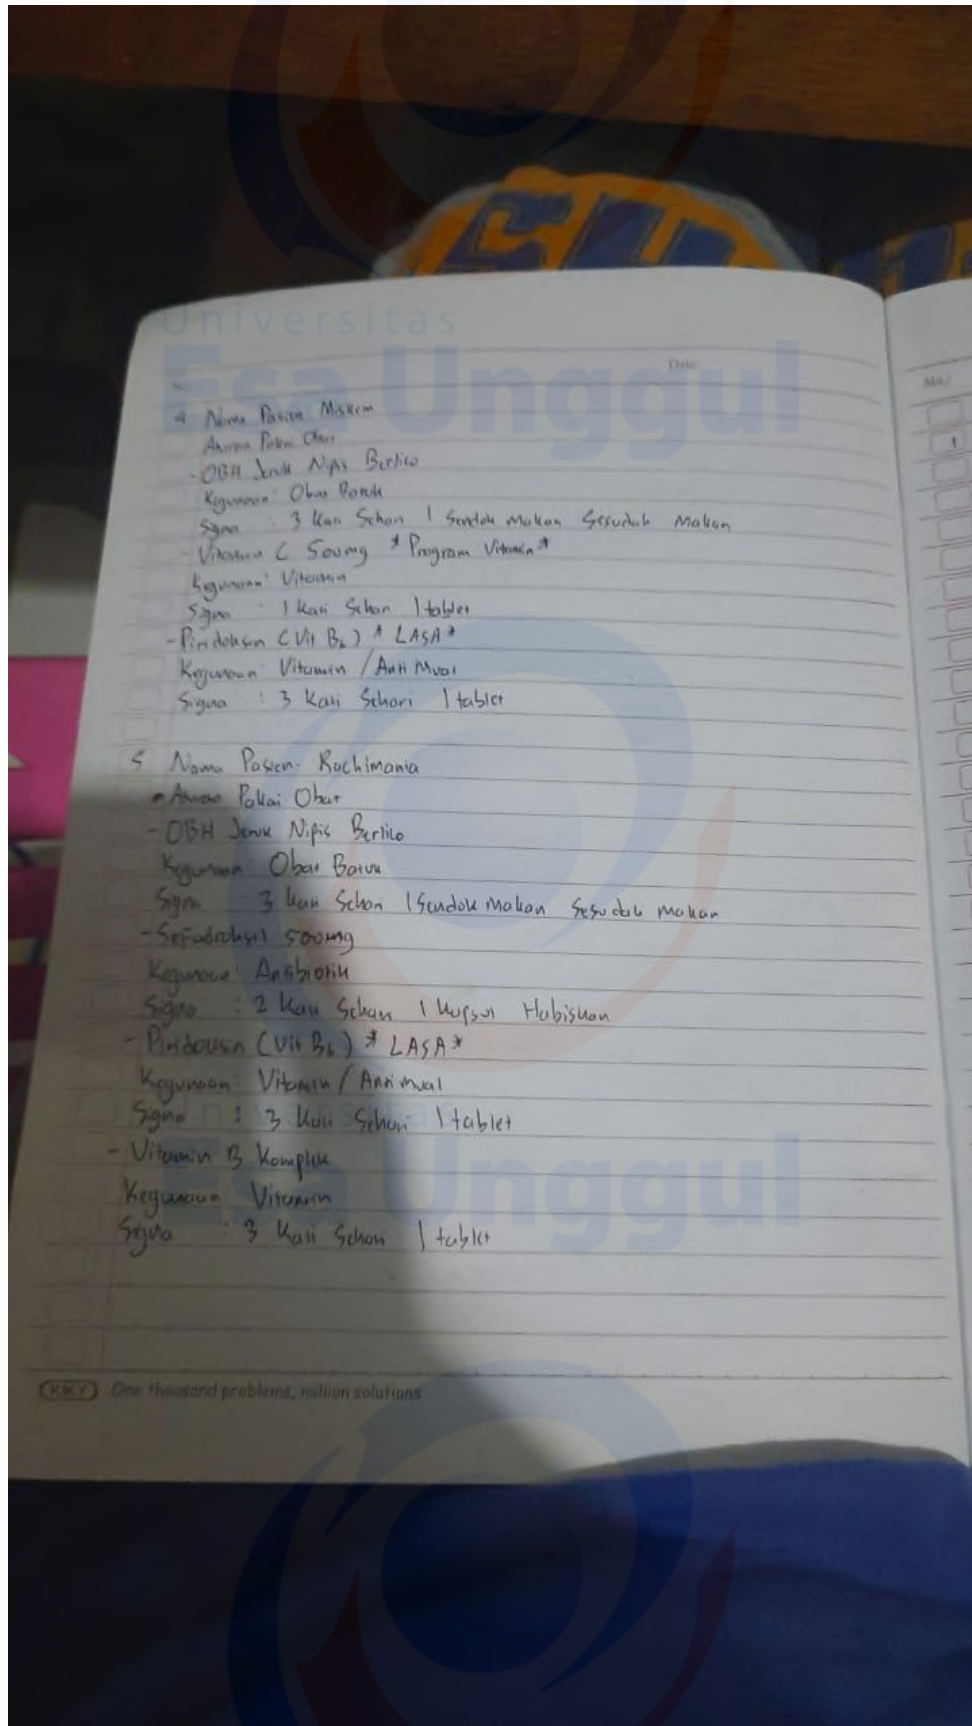 Universitas
Esa Unggul
Date
No.:
4 Nama Pasien Miskem
Aturan Pakai Obat
- OBH Jeruk Nipis Berlico
Kegunaan: Obat Batuk
Signa : 3 Kali Sehari 1 Sendok Makan Sesudah Makan
- Vitamin C 500mg *Program Vitamin*
Kegunaan: Vitamin
Signa : 1 Kali Sehari 1 tablet
- Piridoksin (Vit B6) *LASA*
Kegunaan: Vitamin / Anti Mual
Signa : 3 Kali Sehari 1 tablet
5 Nama Pasien: Rachimania
- Aturan Pakai Obat
- OBH Jeruk Nipis Berlico
Kegunaan: Obat Batuk
Signa : 3 Kali Sehari 1 Sendok Makan Sesudah Makan
- Sefadroksil 500mg
Kegunaan: Antibiotik
Signa : 2 Kali Sehari 1 Kapsul Habiskan
- Piridoksin (Vit B6) *LASA*
Kegunaan: Vitamin / Anti mual
Signa : 3 Kali Sehari 1 tablet
- Vitamin B Kompleks
Kegunaan: Vitamin
Signa : 3 Kali Sehari 1 tablet
Universitas
Esa Unggul
KIKY One thousand problems, million solutions